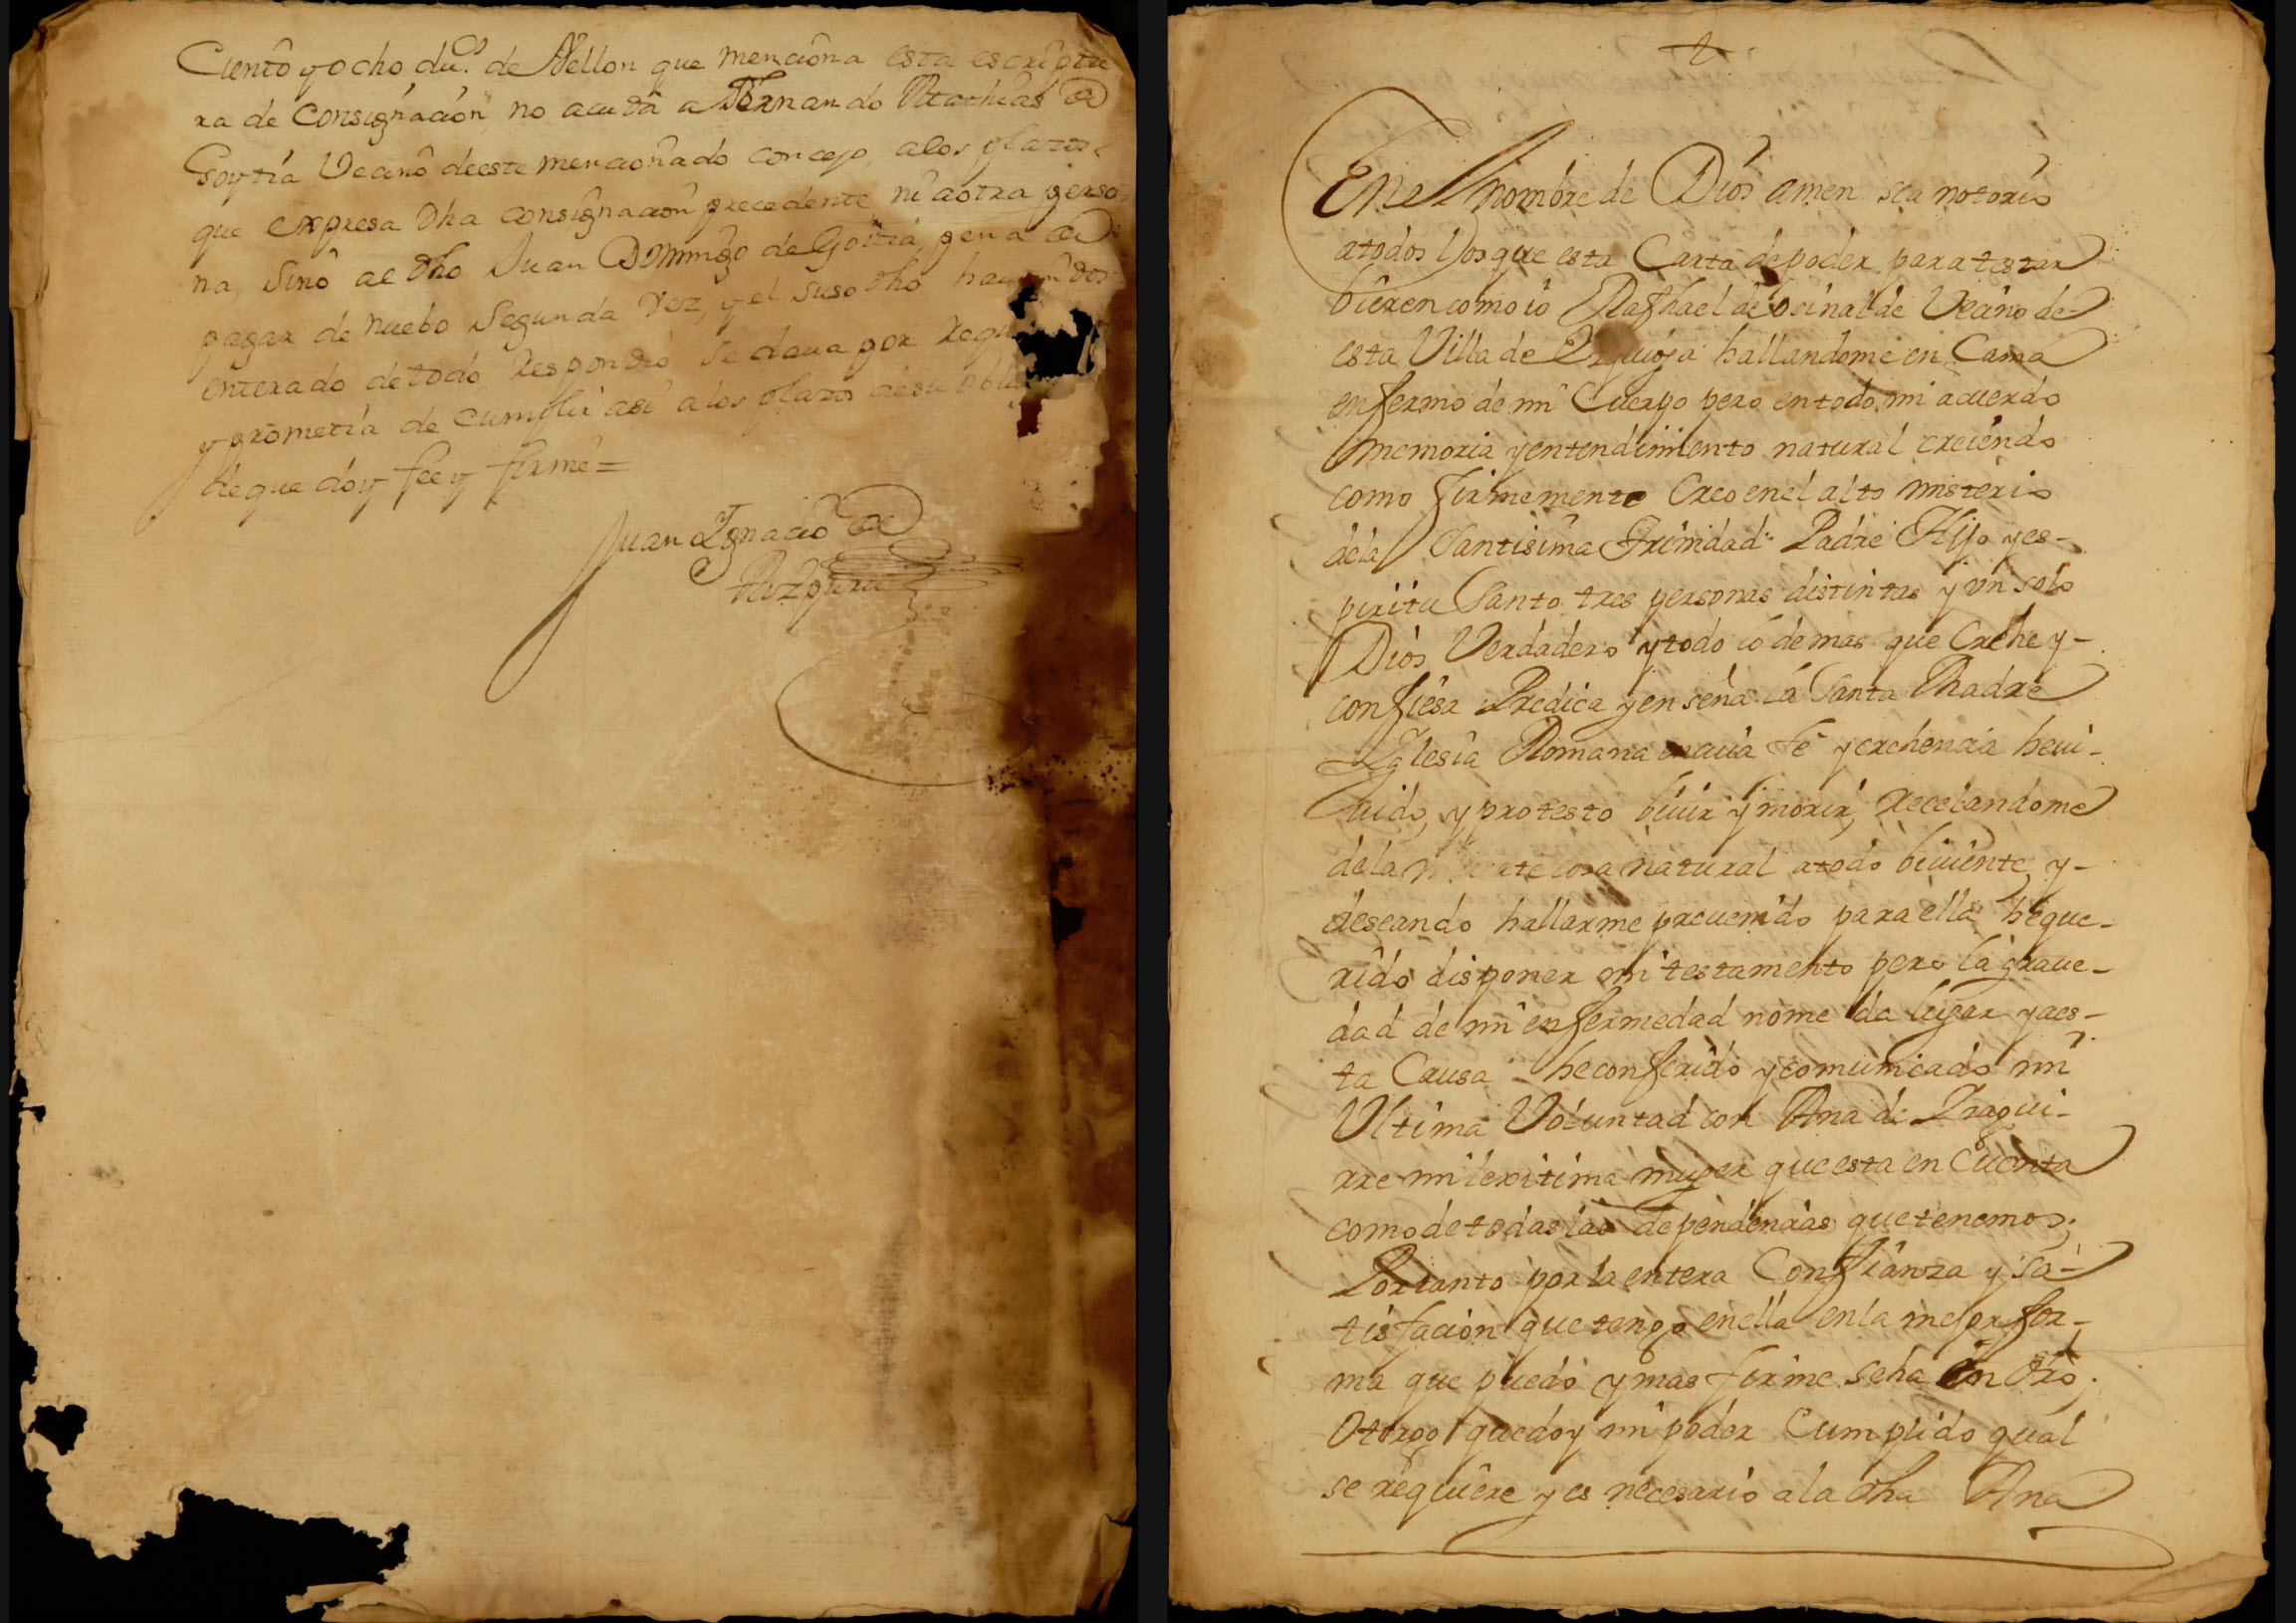 Ciento y ocho du.os de Vellon que menciona esta escriptu
ra de Consignacion, no acuda a Fernando Mathias de
Goytia Vecino deeste mencionado concejo, alos plazos
que expresa dha consignacion precedente ni aotra perso
na, Sino al dho Juan Domingo de Goitia, pena de
pagar de nuebo Segunda Vez, y el suso dho
enterado detodo, Respondio Se dava por
y prometia de Cumplir asi alos plazos desu
deque doy fee y firme =
Juan Ignacio de
Enel nombre de Dios amen sea notorio
atodos los que esta Carta de poder para testar
bieren como io Raphael de osinalde Vecino de
esta Villa de hallandome en Cama
enfermo de mi Cuerpo pero entodo mi acuerdo
memoria y entendimiento natural creiendo
como firmemente Creo enel alto misterio
dela Santisima Trinidad Padre Hijo y es-
piritu Santo tres personas distintas y un solo
Dios Verdadero y todo lo demas que Crehe y-
confiesa Predica y enseña la Santa Madre
Iglesia Romana en cuia fe y crehencia he vi-
uido, y protesto viuir y morir, Recelandome
dela cosa natural atodo biuiente, y-
deseando hallarme preuenido para ella he que-
rido disponer mi testamento pero la graue-
dad de mi enfermedad nome da lugar y aes-
ta Causa he conferido y comunicado mi
Ultima Voluntad con Ana de Iragui-
rre mi lexitima muger que esta en Cuenta
como de todas las dependencias que tenemos;
Portanto por la entera Confianza y sa-
tisfacion que tengo enella enla mejor for-
ma que puedo y mas firme seha en dro;
Otorgo que doy mi poder Cumplido qual
se requiere y es necesario a la dha Ana